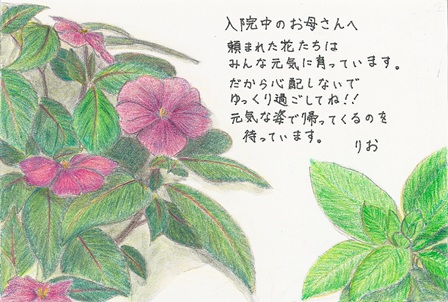 入院中のお母さんへ
頼まれた花たちは
みんな元気に育っています。
だから心配しないで
ゆっくり過ごしてね!!
元気な姿で帰ってくるのを
待っています。
りお